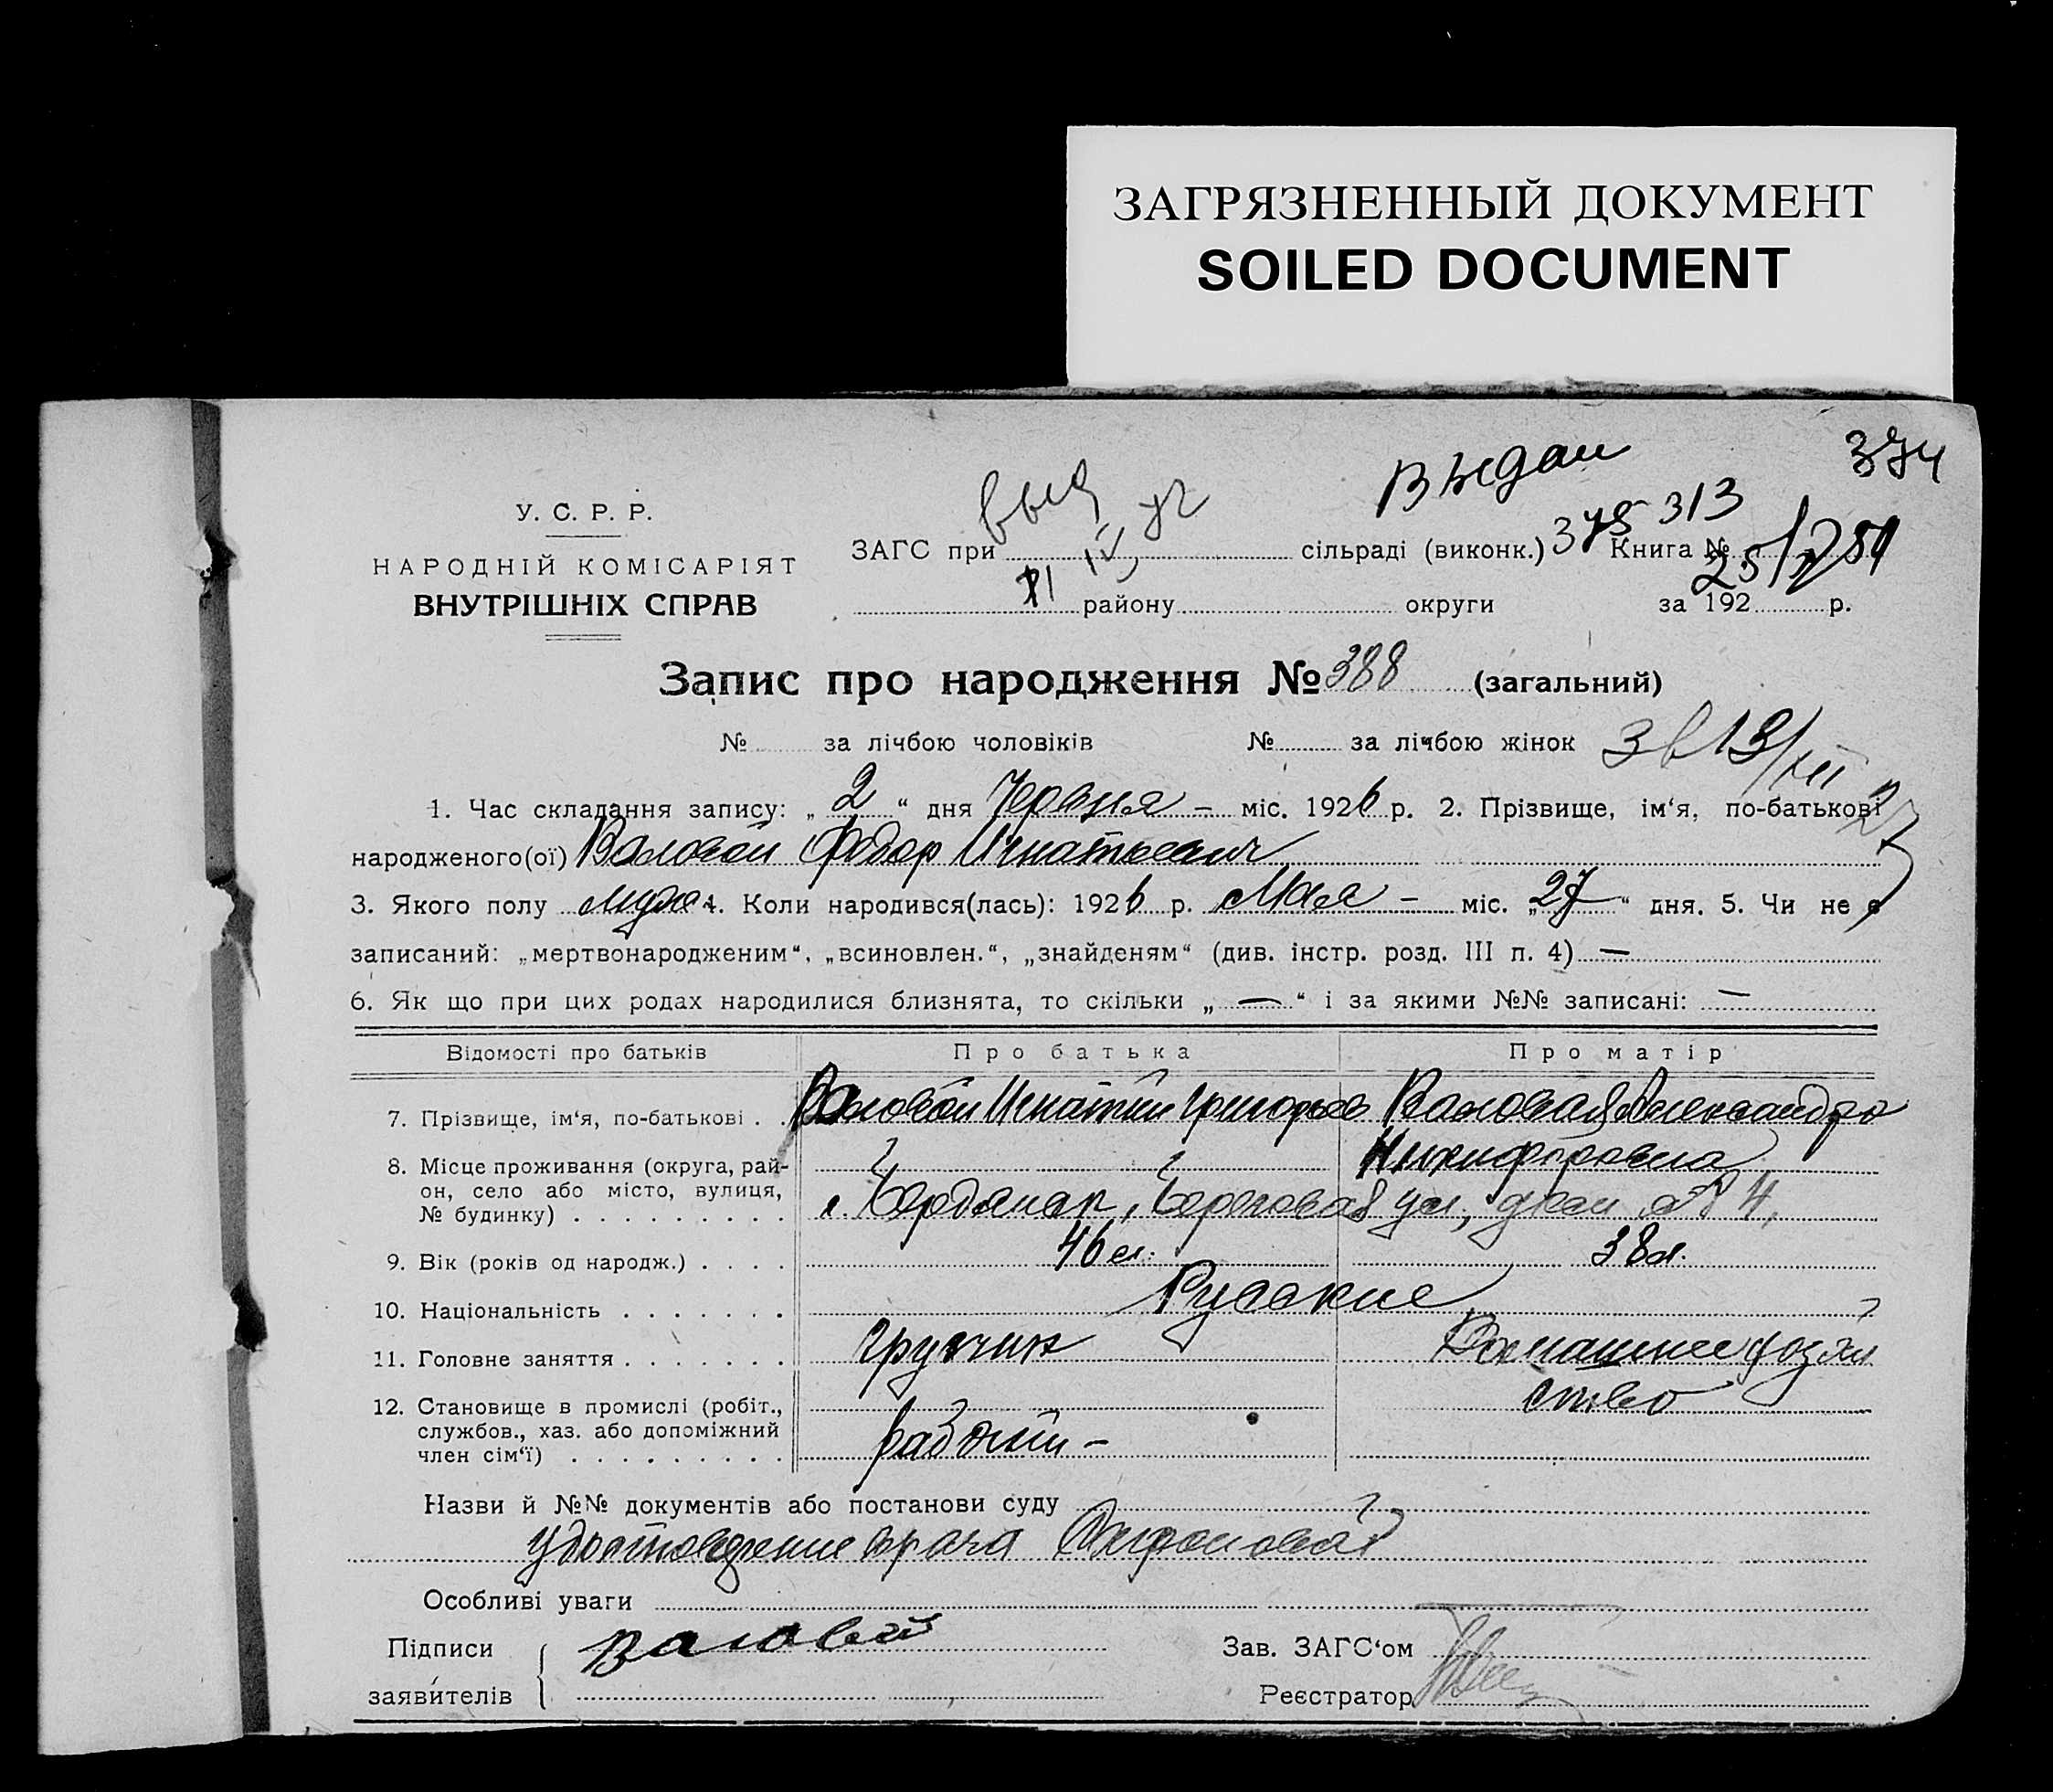 ЗАГРЯЗНЕННЫЙ ДОКУМЕНТ
SOILED DOCUMENT
Выдан
374
У. С. Р. Р.
НАРОДНІЙ КОМІСАРІЯТ
ВНУТРІШНІХ СПРАВ
выд
375 313
ЗАГС при сільраді (виконк.) Книга №
району округи за 192 р.
Запис про народження № 388 (загальний)
№ за лічбою чоловіків № за лічбою жінок
1. Час складання запису: „ 2 “ дня Червня – міс. 1926 р. 2. Прізвище, ім‘я, по-батькові
народженого(ої) Валовой Федор Игнатьевич
3. Якого полу муж. 4. Коли народився(лась): 1926 р. Мая – міс. „27“ дня. 5. Чи не є
записаний: „мертвонародженим“, „всиновлен.“, „знайденям“ (див. інстр. розд. III п. 4) —
6. Як що при цих родах народилися близнята, то скільки „ — “ і за якими №№ записані: —
Відомості про батьків Про батька Про матір
7. Прізвище, ім‘я, по-батькові . . Валовой Игнатий Григорьев Валовая Александра
Никифоровна
8. Місце проживання (округа, рай-
он, село або місто, вулиця,
№ будинку) . . . . . . . . . г. Бердянск, Береговая ул., дом № 4,
9. Вік (років од народж.) . . . . 46 л. 38 л.
10. Національність . . . . . . . Русские
11. Головне заняття . . . . . . . грузчик Домашнее хозяй
ство
12. Становище в промислі (робіт.,
службов., хаз. або допоміжний
член сім‘ї) . . . . . . . . . рабочий –
Назви й №№ документів або постанови суду
удостоверение врача
Особливі уваги
Підписи Валовой Зав. ЗАГС‘ом
заявителів Реєстратор